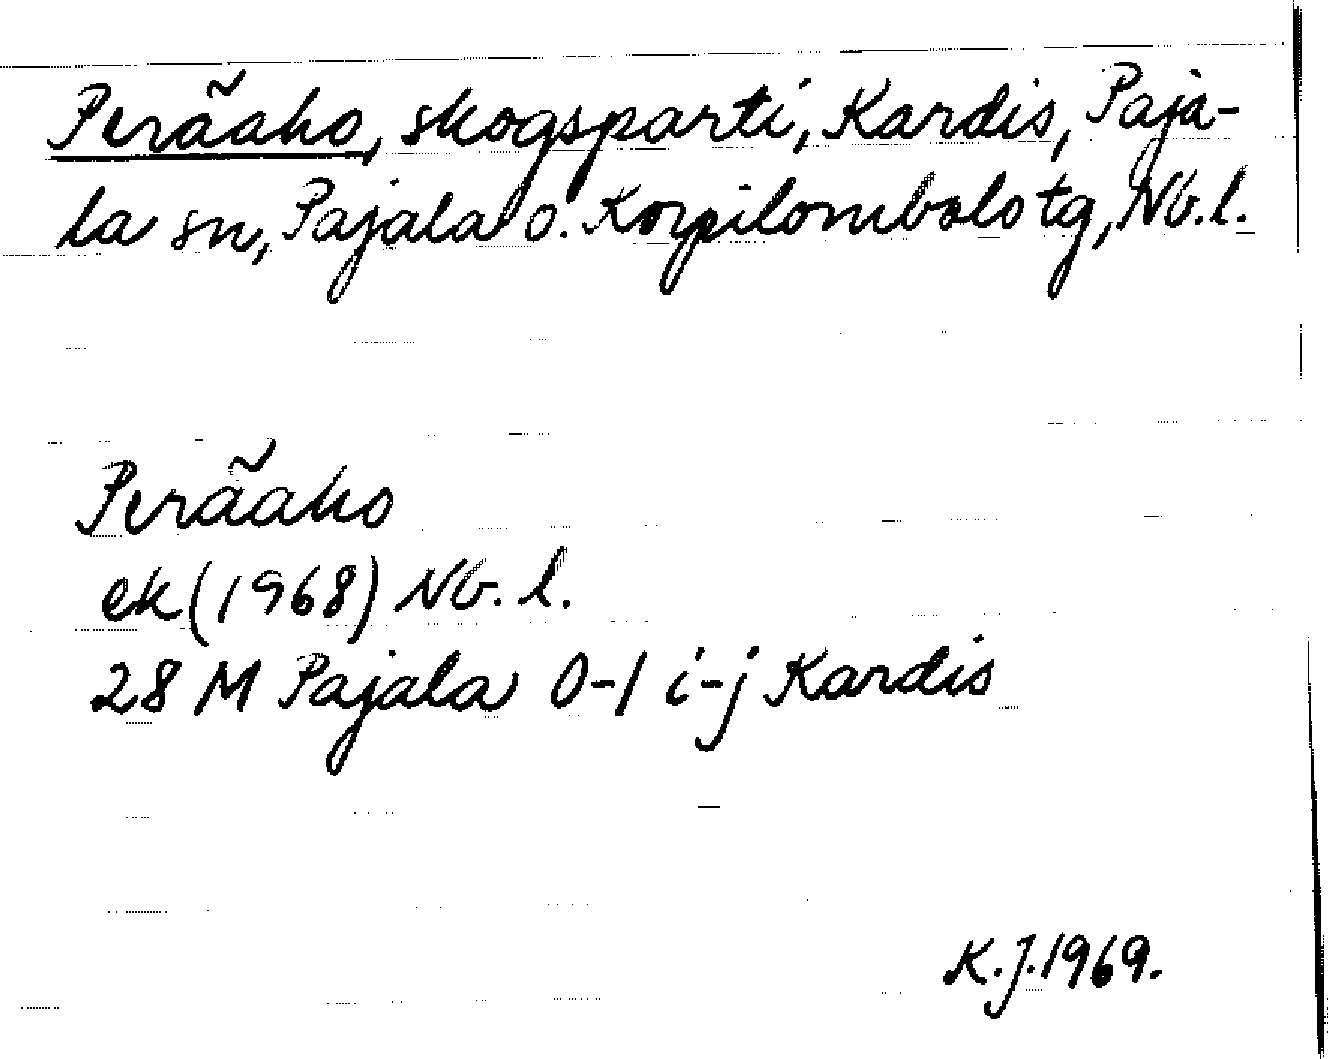 Peräaho, skogsparti, Kardis, Paja-
la sn, Pajala o. Korpilombolo tg, Nb.l.
Peräaho
ek (1968) Nb. l.
28 M Pajala 0-1 i-j Kardis
K.J. 1969.